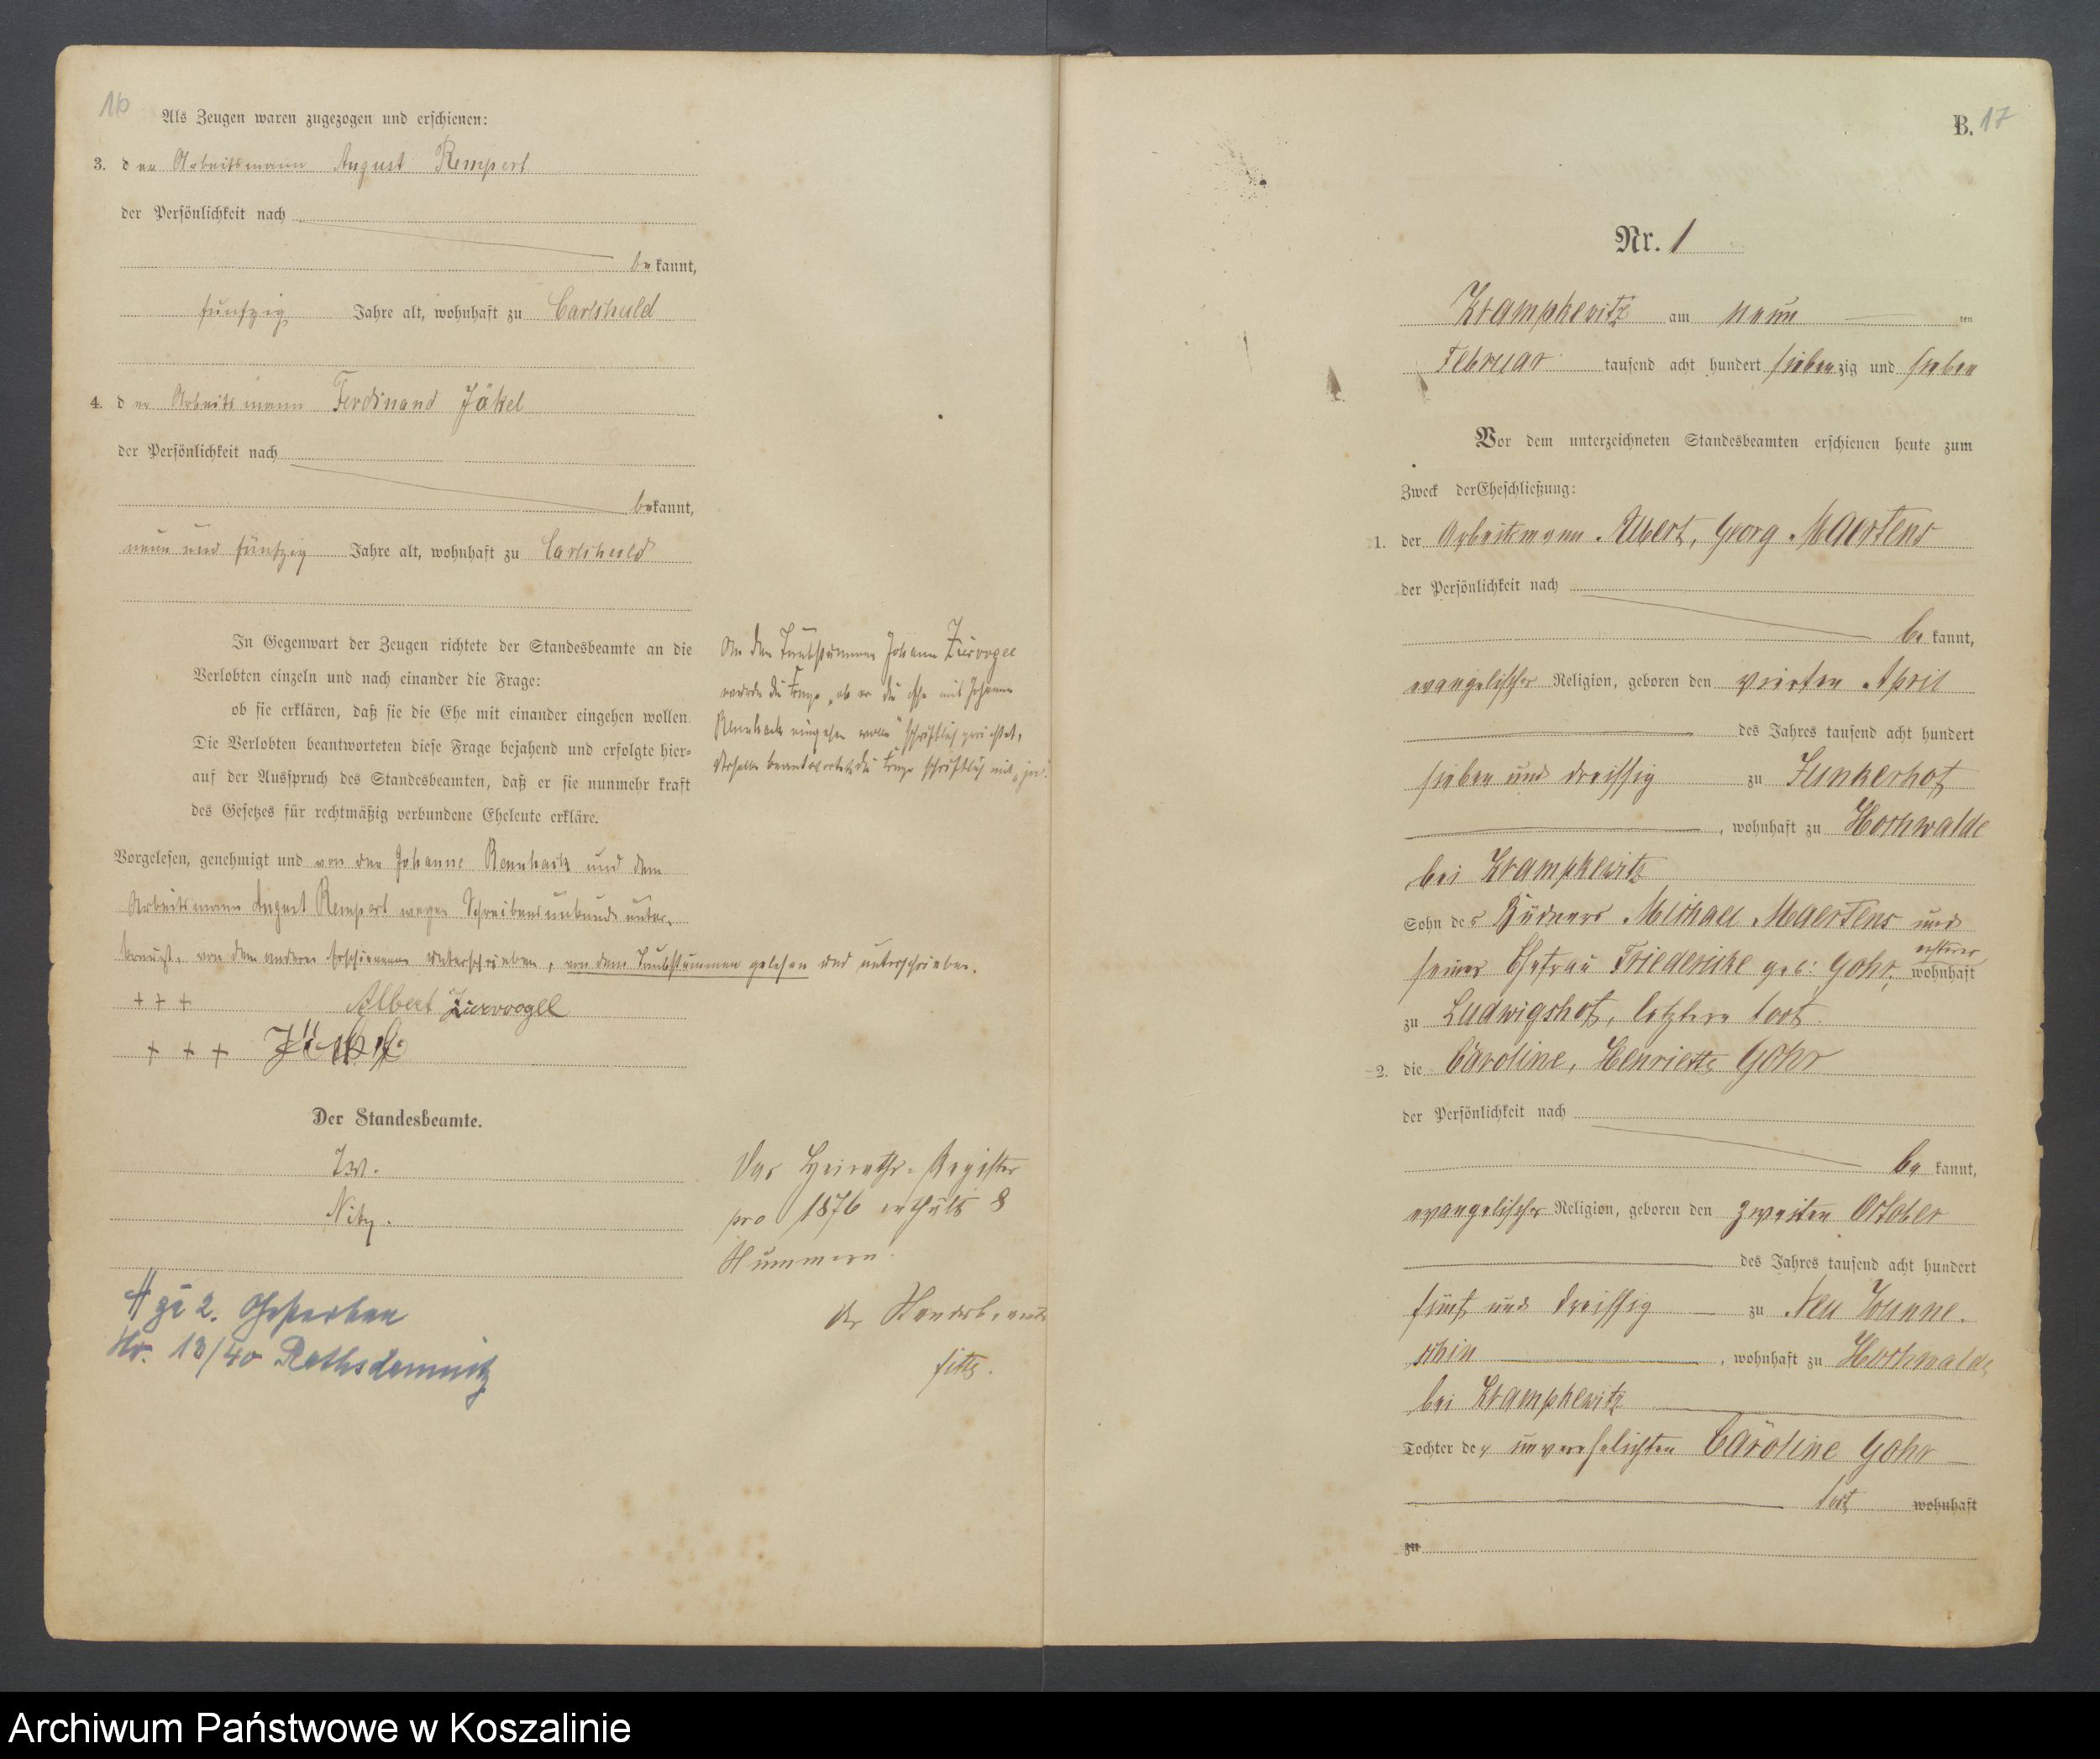 16
Als Zeugen waren zugezogen und erschienen:
3. der Arbeitsmann August Rempert
der Persönlichkeit nach
bekannt,
fünfzig Jahre alt, wohnhaft zu Carlshuld
4. der Arbeitsmann Ferdinand Jäkel
der Persönlichkeit nach
bekannt,
neun und fünfzig Jahre alt, wohnhaft zu Carlshuld
In Gegenwart der Zeugen richtete der Standesbeamte an die
Verlobten einzeln und nach einander die Frage:
ob sie erklären, daß sie die Ehe mit einander eingehen wollen.
Die Verlobten beantworteten diese Frage bejahend und erfolgte hier-
auf der Ausspruch des Standesbeamten, daß er sie nunmehr kraft
des Gesetzes für rechtmäßig verbundene Eheleute erkläre.
An den Taubstummen Johann Ziervogel
wurde die Frage „ob er die Ehe mit Johanne
eingehen wolle" schriftlich gerichtet,
derselbe beantwortete die Frage schriftlich mit „ja".
Vorgelesen, genehmigt und von der Johanne und dem
Arbeitsmann August Rempert wegen Schreibensunkunde unter-
kreuzt, von dem anderen Erschienenen unterschrieben, von dem Taubstummen gelesen und unterschrieben.
+++ Albert Ziervogel
+++ Jäkel
Der Standesbeamte.
Das Heiraths-Register
pro 1876 enthält 8
Nummern.
Der Standesbeamte
zu 2. Gestorben
Nr. 13/40 Rathsdamnitz
B. 17
Nr. 1
Krampkewitz am neun ten
Februar tausend acht hundert siebenzig und sieben
Vor dem unterzeichneten Standesbeamten erschienen heute zum
Zweck der Eheschließung:
1. der Arbeitsmann Albert, Georg Maertens
der Persönlichkeit nach
bekannt,
evangelischer Religion, geboren den vierten April
des Jahres tausend acht hundert
sieben und dreissig zu Junkerhof
, wohnhaft zu Hochwalde
bei Krampkewitz
Sohn des Büdners Michael Maertens und
seiner Ehefrau Friedericke geb: Gohr, ersterer wohnhaft
zu Ludwigshof, letztere todt.
2. die Caroline, Henriette Gohr
der Persönlichkeit nach
bekannt,
evangelischer Religion, geboren den zweiten October
des Jahres tausend acht hundert
fünf und dreissig zu Neu
, wohnhaft zu Hochwalde
bei Krampkewitz
Tochter der unverehelichten Caroline Gohr
todt wohnhaft
zu
Archiwum Państwowe w Koszalinie